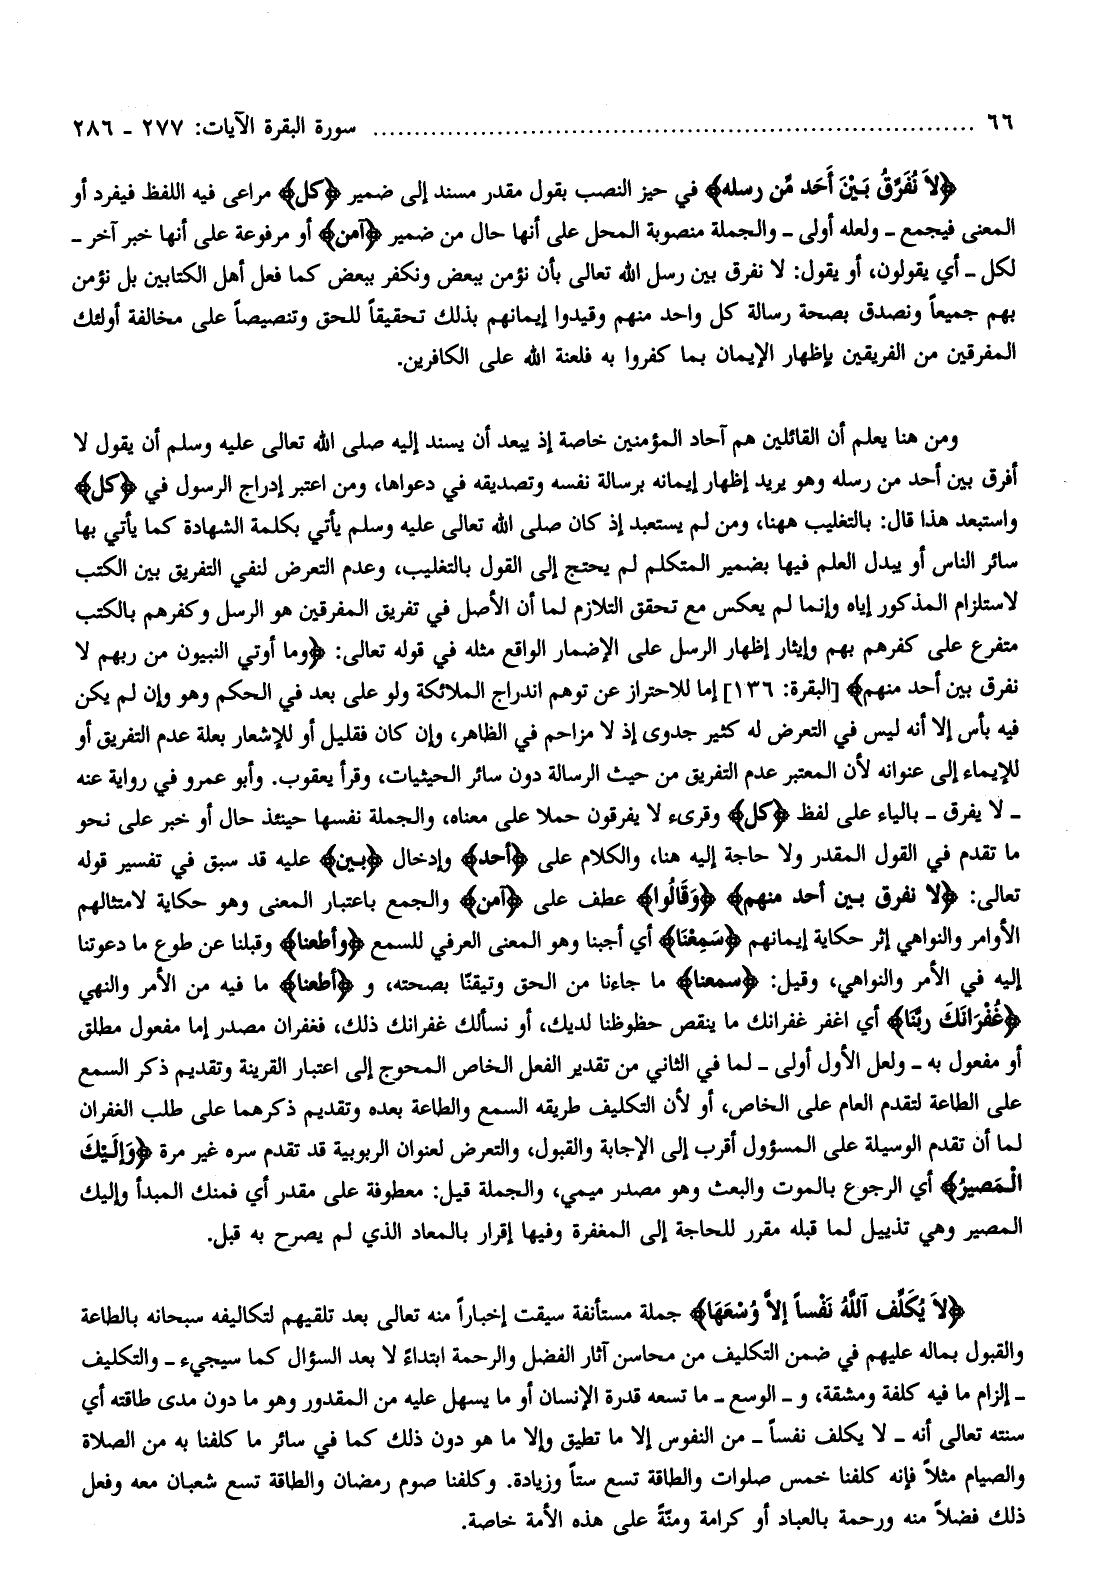 ٦٦ ........................................................................ سورة البقرة الآيات: ٢٧٧ ـ ٢٨٦
﴿لاَ نُفَرِّقُ بَيْنَ أَحَد مِّن رسله﴾ في حيز النصب بقول مقدر مسند إلى ضمير ﴿كل﴾ مراعى فيه اللفظ فيفرد أو
المعنى فيجمع ـ ولعله أولى ـ والجملة منصوبة المحل على أنها حال من ضمير ﴿آمن﴾ أو مرفوعة على أنها خبر آخر ـ
لكل ـ أي يقولون، أو يقول: لا نفرق بين رسل الله تعالى بأن نؤمن ببعض ونكفر ببعض كما فعل أهل الكتابين بل نؤمن
بهم جميعاً ونصدق بصحة رسالة كل واحد منهم وقيدوا إيمانهم بذلك تحقيقاً للحق وتنصيصاً على مخالفة أولئك
المفرقين من الفريقين بإظهار الإيمان بما كفروا به فلعنة الله على الكافرين.
ومن هنا يعلم أن القائلين هم آحاد المؤمنين خاصة إذ يبعد أن يسند إليه صلى الله تعالى عليه وسلم أن يقول لا
أفرق بين أحد من رسله وهو يريد إظهار إيمانه برسالة نفسه وتصديقه في دعواها، ومن اعتبر إدراج الرسول في ﴿كل﴾
واستبعد هذا قال: بالتغليب ههنا، ومن لم يستعبد إذ كان صلى الله تعالى عليه وسلم يأتي بكلمة الشهادة كما يأتي بها
سائر الناس أو يبدل العلم فيها بضمير المتكلم لم يحتج إلى القول بالتغليب، وعدم التعرض لنفي التفريق بين الكتب
لاستلزام المذكور إياه وإنما لم يعكس مع تحقق التلازم لما أن الأصل في تفريق المفرقين هو الرسل وكفرهم بالكتب
متفرع على كفرهم بهم وإيثار إظهار الرسل على الإضمار الواقع مثله في قوله تعالى: ﴿وما أوتي النبيون من ربهم لا
نفرق بين أحد منهم﴾ [البقرة: ١٣٦] إما للاحتراز عن توهم اندراج الملائكة ولو على بعد في الحكم وهو وإن لم يكن
فيه بأس إلا أنه ليس في التعرض له كثير جدوى إذ لا مزاحم في الظاهر، وإن كان فقليل أو للإشعار بعلة عدم التفريق أو
للإيماء إلى عنوانه لأن المعتبر عدم التفريق من حيث الرسالة دون سائر الحيثيات، وقرأ يعقوب. وأبو عمرو في رواية عنه
ـ لا يفرق ـ بالياء على لفظ ﴿كل﴾ وقرىء لا يفرقون حملا على معناه، والجملة نفسها حينئذ حال أو خبر على نحو
ما تقدم في القول المقدر ولا حاجة إليه هنا، والكلام على ﴿أحد﴾ وإدخال ﴿بين﴾ عليه قد سبق في تفسير قوله
تعالى: ﴿لا نفرق بين أحد منهم﴾ ﴿وَقَالُوا﴾ عطف على ﴿آمن﴾ والجمع باعتبار المعنى وهو حكاية لامتثالهم
الأوامر والنواهي إثر حكاية إيمانهم ﴿سَمِعْنَا﴾ أي أجبنا وهو المعنى العرفي للسمع ﴿وأطعنا﴾ وقبلنا عن طوع ما دعوتنا
إليه في الأمر والنواهي، وقيل: ﴿سمعنا﴾ ما جاءنا من الحق وتيقنّا بصحته، و ﴿أطعنا﴾ ما فيه من الأمر والنهي
﴿غُفْرَانَكَ رَبَّنَا﴾ أي اغفر غفرانك ما ينقص حظوظنا لديك، أو نسألك غفرانك ذلك، فغفران مصدر إما مفعول مطلق
أو مفعول به ـ ولعل الأول أولى ـ لما في الثاني من تقدير الفعل الخاص المحوج إلى اعتبار القرينة وتقديم ذكر السمع
على الطاعة لتقدم العام على الخاص، أو لأن التكليف طريقه السمع والطاعة بعده وتقديم ذكرهما على طلب الغفران
لما أن تقدم الوسيلة على المسؤول أقرب إلى الإجابة والقبول، والتعرض لعنوان الربوبية قد تقدم سره غير مرة ﴿وَإِلَيْكَ
الْمَصيرُ﴾ أي الرجوع بالموت والبعث وهو مصدر ميمي، والجملة قيل: معطوفة على مقدر أي فمنك المبدأ وإليك
المصير وهي تذييل لما قبله مقرر للحاجة إلى المغفرة وفيها إقرار بالمعاد الذي لم يصرح به قبل.
﴿لاَ يُكَلِّف آللَّهُ نَفْساً إلاَّ وُسْعَهَا﴾ جملة مستأنفة سيقت إخباراً منه تعالى بعد تلقيهم لتكاليفه سبحانه بالطاعة
والقبول بماله عليهم في ضمن التكليف من محاسن آثار الفضل والرحمة ابتداءً لا بعد السؤال كما سيجيء ـ والتكليف
ـ إلزام ما فيه كلفة ومشقة، و ـ الوسع ـ ما تسعه قدرة الإنسان أو ما يسهل عليه من المقدور وهو ما دون مدى طاقته أي
سنته تعالى أنه ـ لا يكلف نفساً ـ من النفوس إلا ما تطيق وإلا ما هو دون ذلك كما في سائر ما كلفنا به من الصلاة
والصيام مثلاً فإنه كلفنا خمس صلوات والطاقة تسع ستاً وزيادة. وكلفنا صوم رمضان والطاقة تسع شعبان معه وفعل
ذلك فضلاً منه ورحمة بالعباد أو كرامة ومنّةً على هذه الأمة خاصة.